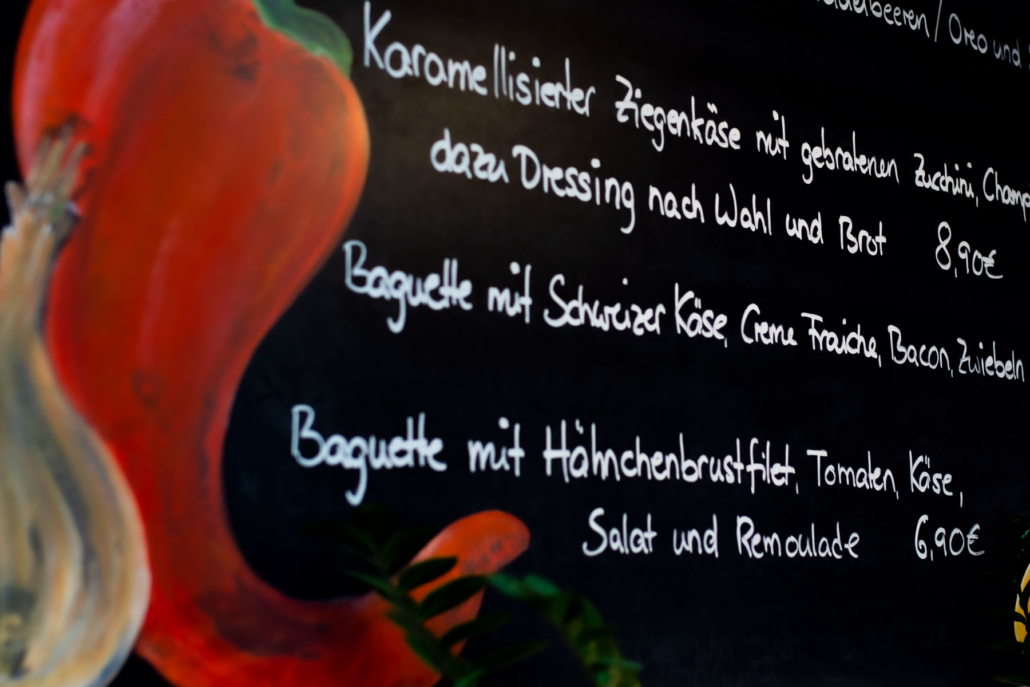 Oreo und
Karamellisierter Ziegenkäse mit gebratenen Zucchini, Champ
dazu Dressing nach Wahl und Brot 8,90€
Baguette mit Schweizer Käse, Creme Fraiche, Bacon, Zwiebeln
Baguette mit Hähnchenbrustfilet, Tomaten, Käse,
Salat und Remoulade 6,90€